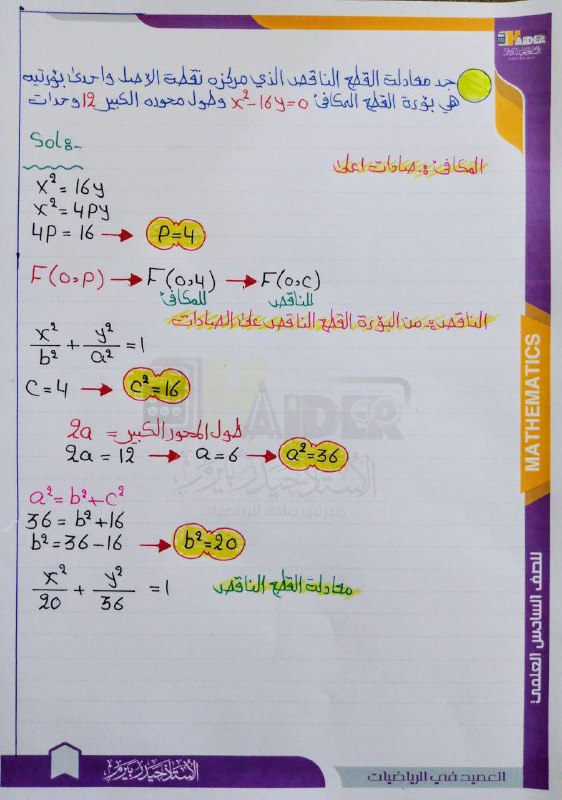 HAIDER
جد معادلة القطع الناقص الذي مركزه نقطة الاصل واحدى بؤرتيه
هي بؤرة القطع المكافئ x²-16y=0 وطول محوره الكبير 12 وحدات
Sol:-
المكافئ: صادات اعلى
x²=16y
x²=4py
4p=16 → p=4
F(0,p) → F(0,4) → F(0,c)
للمكافئ للناقص
الناقص: من البؤرة القطع الناقص على الصادات
x²/b² + y²/a² = 1
c=4 → c²=16
طول المحور الكبير = 2a
2a=12 → a=6 → a²=36
a²=b²+c²
36=b²+16
b²=36-16 → b²=20
x²/20 + y²/36 = 1 معادلة القطع الناقص
HAIDER
الأستاذ حيدر بيرم
مدرس مادة الرياضيات
MATHEMATICS
للصف السادس العلمي
الأستاذ حيدر بيرم
العميد في الرياضيات